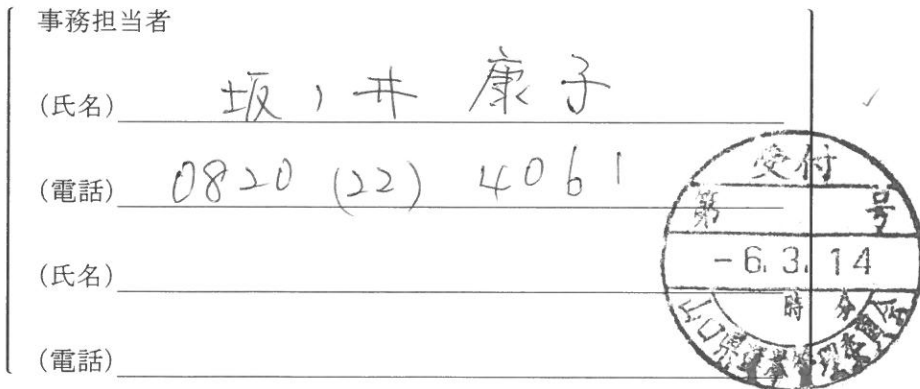 事務担当者
(氏名) 坂ノ井 康子
(電話) 0820 (22) 4061
(氏名)
(電話)
受付
第 号
-6.3.14
時 分
山口県選挙管理委員会